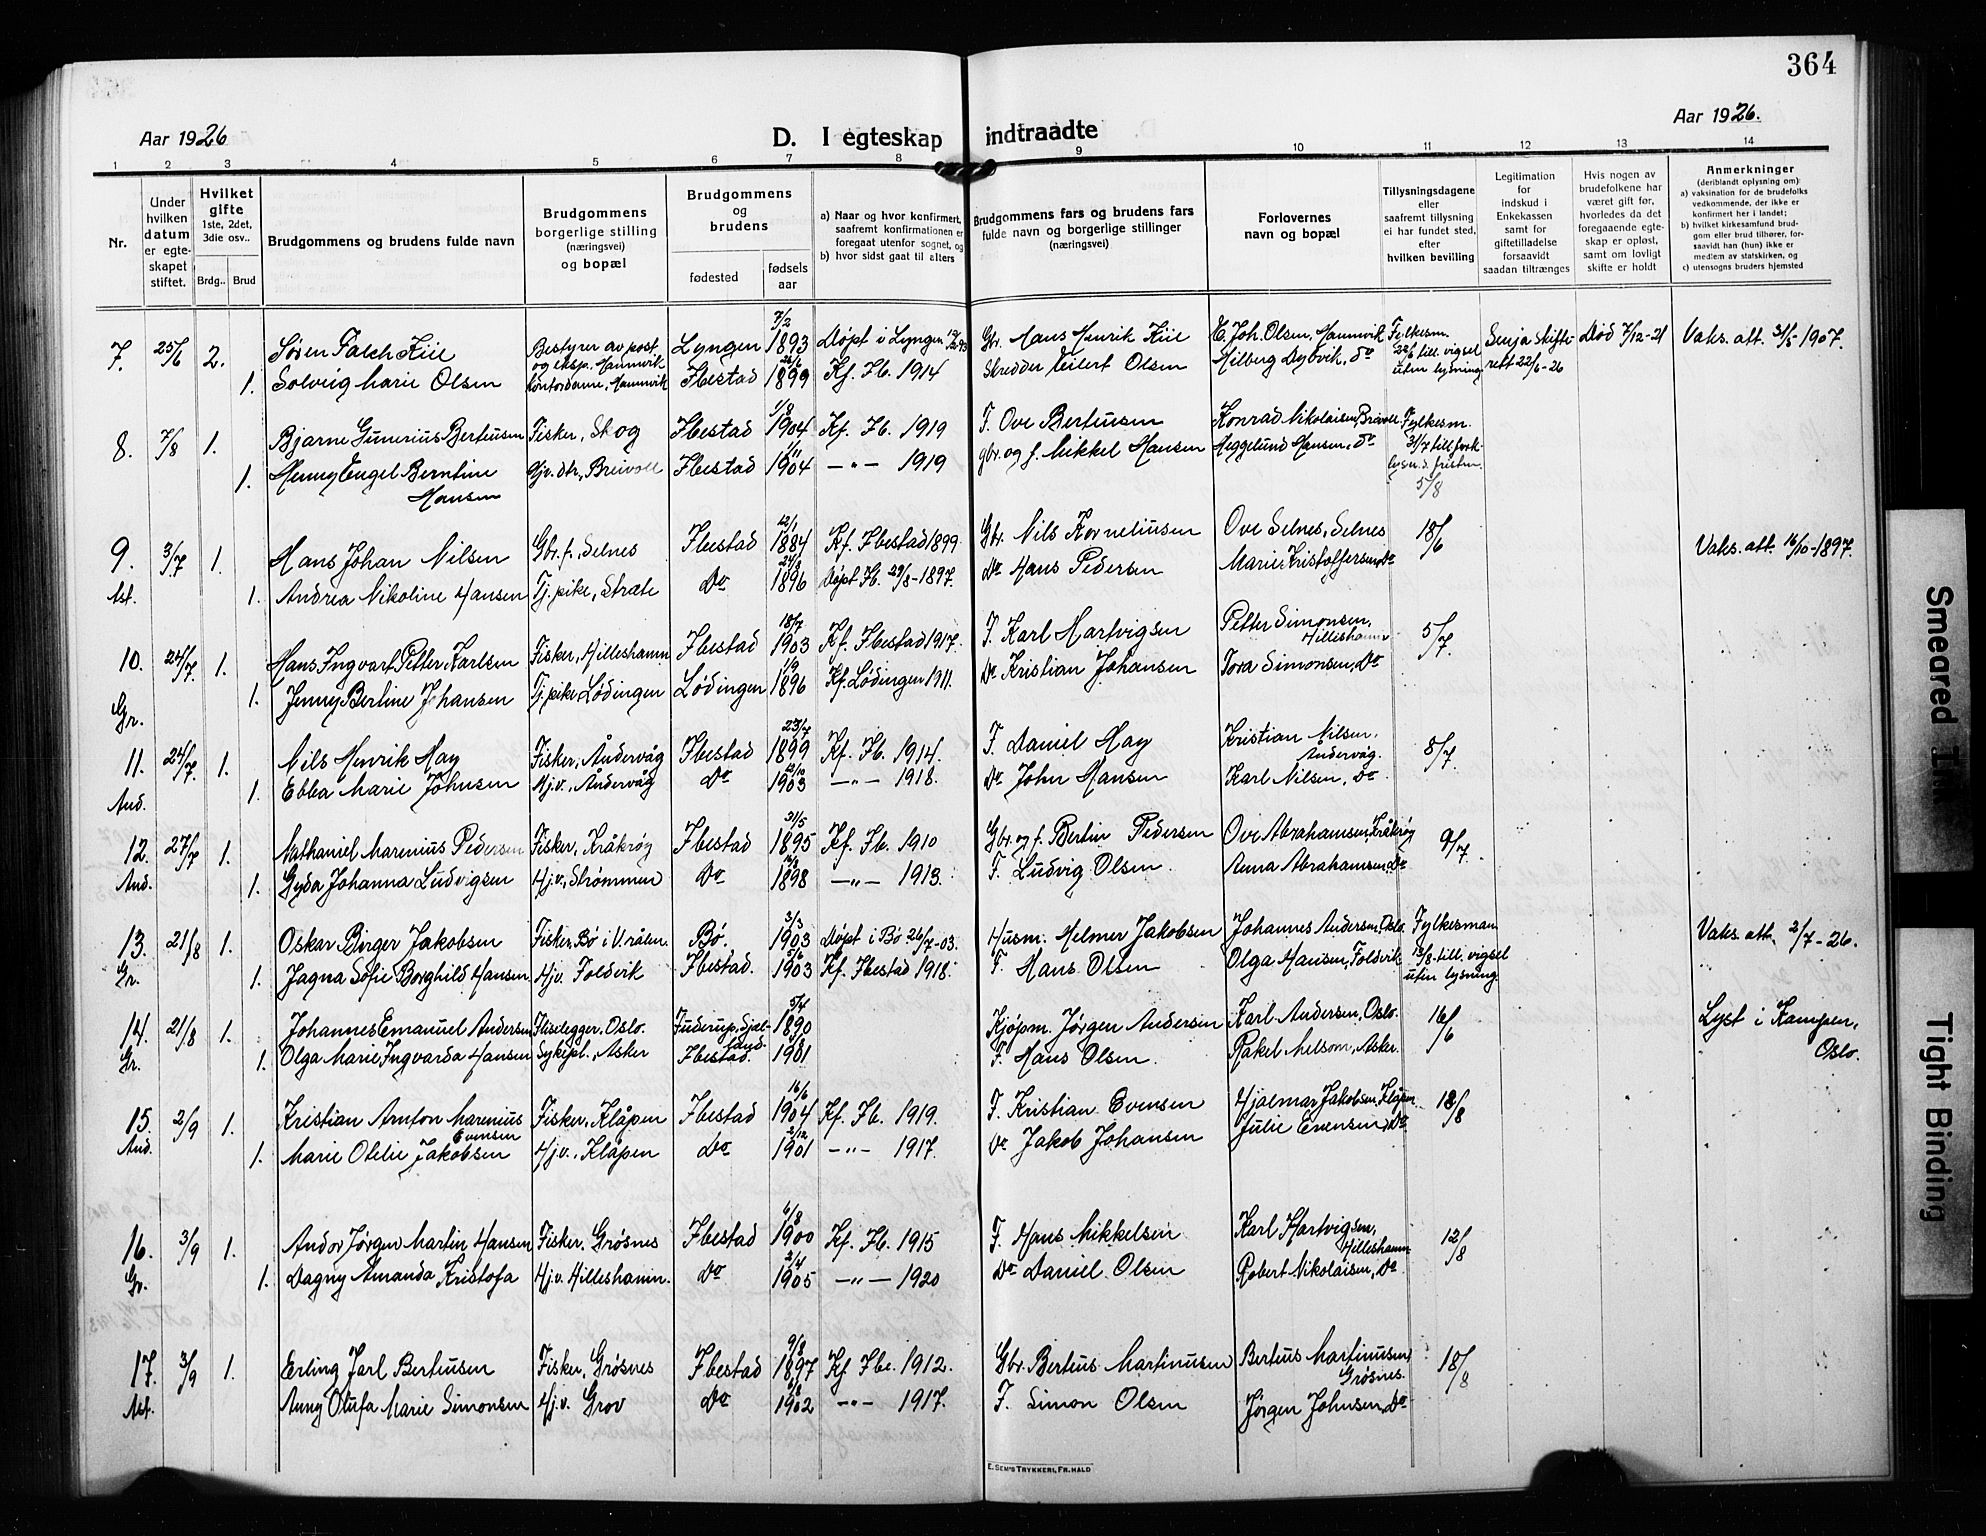 364
Aar 1926
D. I egteskap indtraadte
Aar 1926.
1 2 3 4 5 6 7 8 9 10 11 12 13 14
Nr.
Under hvilken datum er egteskapet stiftet.
Hvilket gifte 1ste, 2det, 3die osv..
Brdg.. Brud
Brudgommens og brudens fulde navn
Brudgommens borgerlige stilling (næringsvei) og bopæl
Brudgommens og brudens
fødested
fødsels aar
a) Naar og hvor konfirmert, saafremt konfirmationen er foregaat utenfor sognet, og
b) hvor sidst gaat til alters
Brudgommens fars og brudens fars fulde navn og borgerlige stillinger (næringsvei)
Forlovernes navn og bopæl
Tillysningsdagene eller saafremt tillysning ei har fundet sted, efter hvilken bevilling
Legitimation for indskud i Enkekassen samt for giftetilladelse forsaavidt saadan tiltrænges
Hvis nogen av brudefolkene har været gift før, hvorledes da det foregaaende egteskap er opløst, samt om lovligt skifte er holdt
Anmerkninger (deriblandt oplysning om):
a) vaksination for de brudefolks vedkommende, der ikke er konfirmert her i landet;
b) hvilket kirkesamfund brudgom eller brud tilhører, forsaavidt han (hun) ikke er medlem av statskirken, og
c) utensogns bruders hjemsted
7. 25/6 2. Søren Falch Kiil Bestyrer av post og eksp. Hamnvik Lyngen 7/2 1893 Døpt i Lyngen Gbr. Hans Henrik Kiil E. Joh. Olsen, Hamnvik Fylkesm. 22/6 till. vigsel uten lysning Senja skifterett 22/6-26 Død 7/12-21 Vaks. att. 31/5-1907.
1. Solveig Marie Olsen Kontordame, Hamnvik Ibestad 1899 Kf. Ib. 1914 Skredder Eilert Olsen Hilberg Dybvik, do
8. 7/8 1. Bjarne Gunerius Berteusen Fisker, Skog Ibestad 1/8 1904 Kf. Ib. 1919 F. Ove Berteusen Konrad Nikolaisen, Breivoll Fylkesm. 31/7 till. fork. lysn.s. fristen 5/8
1. Henny Engel Berntine Hansen Gjv. dtr., Breivoll Ibestad 1904 —"— 1919 gbr. og f. Mikkel Hansen Heggelund Hansen, do
9. 3/7 1. Hans Johan Nilsen Gbr. f., Selnes Ibestad 12/1 1884 Kf. Ibestad 1899 Gbr. Nils Korneliusen Ove Selnes, Selnes 18/6 Vaks. att. 16/10-1897.
Ast. 1. Andrea Nikoline Hansen Tj. pike, Strate Do 1896 Døpt Ib. 29/8-1897. Do Hans Pedersen Marie Kristoffersen, Do
10. 24/7. 1. Hans Ingvart Petter Karlsen Fisker, Hilleshamn Ibestad 18/7 1903 Kf. Ibestad 1917. F. Karl Hartvigsen Petter Simonsen, Hilleshamn 5/7
Gr. 1. Jenny Berline Johansen Tj. pike, Lødingen Lødingen 1/9 1896 Kf. Lødingen 1911. Do Kristian Johansen Tora Simonsen, Do
11. 24/7. 1. Nils Henrik Hay Fisker, Åndervåg Ibestad 23/7 1899 Kf. Ib. 1914. F. Daniel Hay Kristian Nilsen, Åndervåg. 8/7
And. 1. Ebba Marie Johnsen Hj.v., Åndervåg Do 1903 —"— 1918. Do John Hansen Karl Nilsen, Do
12. 27/7 1. Nathaniel Marenius Pedersen Fisker, Kråkrøy Ibestad 31/5 1895 Kf. Ib. 1910 Gbr. og f. Bertin Pedersen Ove Abrahamsen, Kråkrøy 9/7.
And. 1. Gyda Johanna Ludvigsen Hj.v., Strømmen Do 1898 —"— 1913. F. Ludvig Olsen Anna Abrahamsen, Do
13. 21/8 1. Oskar Birger Jakobsen Fisker, Bø i V.rålen. Bø. 3/3 1903 Døpt i Bø 26/7-03. Husm. Helmer Jakobsen Johannes Andersen, Oslo. Fylkesman 13/8 till. vigsel uten lysning Vaks. att. 2/7-26.
Gr. 1. Jagna Sofie Borghild Hansen Hj.v. Foldvik Ibestad. 1903 Kf. Ibestad 1918. F. Hans Olsen Olga Hansen, Foldvik
14. 21/8 1. Johannes Emanuel Andersen Fliselegger, Oslo. Fuderup, Sjælland 1890 Kjøpm. Jørgen Andersen Karl Andersen, Oslo. 16/6 Lyst i Kampen, Oslo.
Gr. 1. Olga Marie Ingvarda Hansen Sykepl., Asker Ibestad. 1901 F. Hans Olsen. Rakel Melsom, Asker.
15. 2/9 1. Kristian Anton Marenius Evensen Fisker, Klåpen Ibestad 16/6 1904 Kf. Ib. 1919. F. Kristian Evensen Hjalmar Jakobsen, Klåpen 18/8
And. 1. Marie Otelie Jakobsen Hj.v., Klåpen Do 2/12 1901 —"— 1917. Do Jakob Johansen Julie Evensen, Do
16. 3/9 1. Andor Jørgen Martin Hansen Fisker, Grøsnes Ibestad 6/8 1900 Kf. Ib. 1915 F. Hans Mikkelsen Karl Hartvigsen, Hilleshamn 12/8
Gr. 1. Dagny Amanda Kristofa Hj.v. Hilleshamn. Do 2/4 1905 —"— 1920 Do Daniel Olsen Robert Nikolaisen, Do
17. 3/9 1. Erling Jarl Berteusen Fisker, Grøsnes Ibestad 9/8 1897 Kf. Ibe. 1912. Gbr. Berteus Martinusen Berteus Martinusen, Grøsnes. 18/8
Ast. 1. Anny Olufa Marie Simonsen Hj.v. Grov Do 6/8 1902 —"— 1917. F. Simon Olsen Jørgen Johnsen, Do
E. SEM'S TRYKKERI, FR.HALD
Smeared Ink
Tight Binding